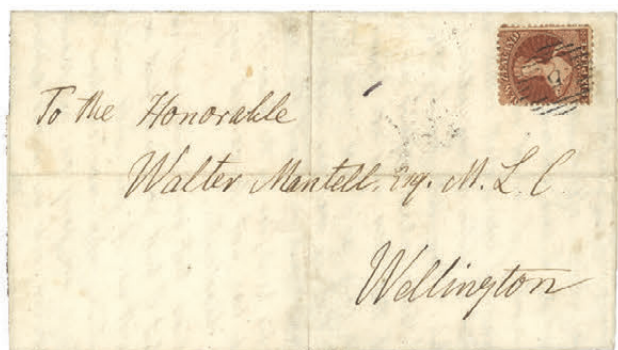 To the Honorable
Walter Mantell. Esq. M. L. C.
Wellington